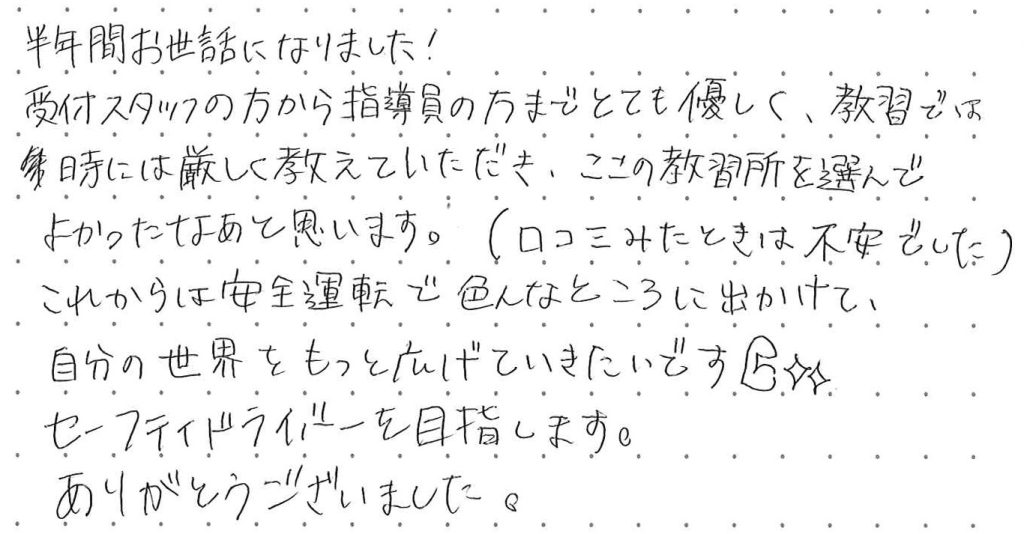 半年間お世話になりました!
受付スタッフの方から指導員の方までとても優しく、教習では
時には厳しく教えていただき、ここの教習所を選んで
よかったなあと思います。(口コミみたときは不安でした)
これからは安全運転で色んなところに出かけて、
自分の世界をもっと広げていきたいです
セーフティドライバーを目指します。
ありがとうございました。